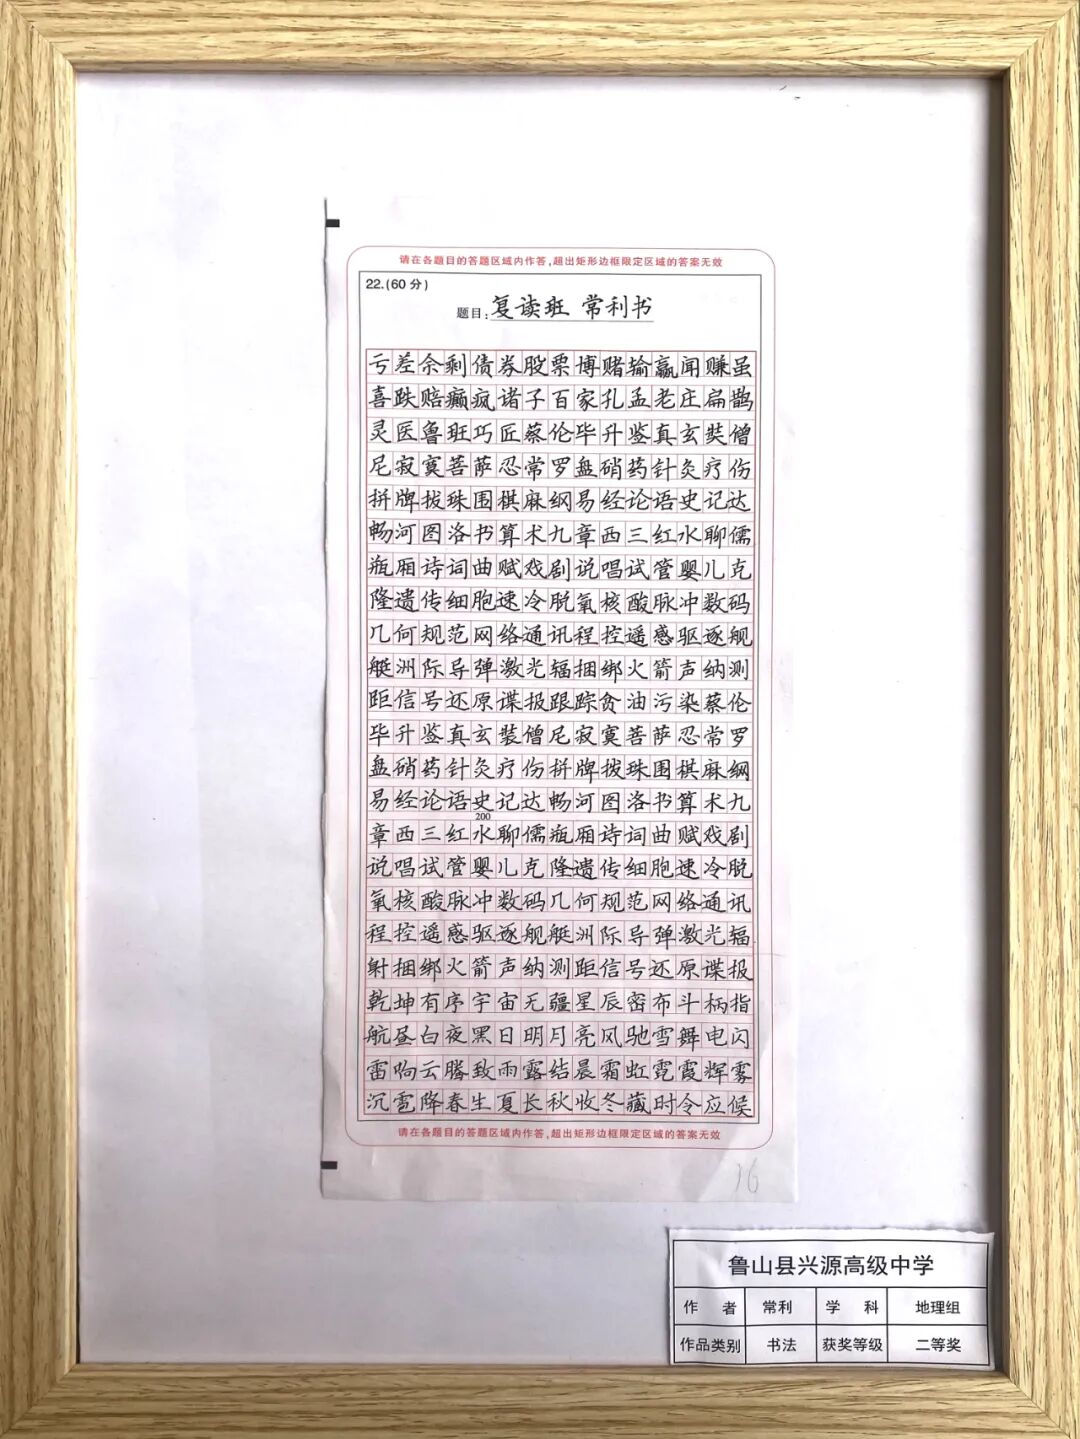 请在各题目的答题区域内作答,超出矩形边框限定区域的答案无效
22.(60分)
题目:复读班 常利书
亏差佘剩债券股票博赌输赢闻赚虽
喜跌赔癫疯诸子百家孔孟老庄扁鹊
灵医鲁班巧匠蔡伦毕升鉴真玄奘僧
尼寂寞菩萨忍常罗盘硝药针灸疗伤
拼牌拨珠围棋麻纲易经论语史记达
畅河图洛书算术九章西三红水聊儒
瓶厢诗词曲赋戏剧说唱试管婴儿克
隆遗传细胞速冷脱氧核酸脉冲数码
几何规范网络通讯程控遥感驱逐舰
艇洲际导弹激光辐捆绑火箭声纳测
距信号还原谍报跟踪贪油污染蔡伦
毕升鉴真玄裝僧尼寂寞菩萨忍常罗
盘硝药针灸疗伤拼牌拨珠围棋麻纲
易经论语史记达畅河图洛书算术九
200
章西三红水聊儒瓶厢诗词曲赋戏剧
说唱试管婴儿克隆遗传细胞速冷脱
氧核酸脉冲数码几何规范网络通讯
程控遥感驱逐舰艇洲际导弹激光辐
射捆绑火箭声纳测距信号还原谍报
乾坤有序宇宙无疆星辰密布斗柄指
航昼白夜黑日明月亮风驰雪舞电闪
雷响云腾致雨露结晨霜虹霓霞辉雾
沉雹降春生夏长秋收冬藏时令应候
请在各题目的答题区域内作答,超出矩形边框限定区域的答案无效
16
鲁山县兴源高级中学
作者 常利 学科 地理组
作品类别 书法 获奖等级 二等奖